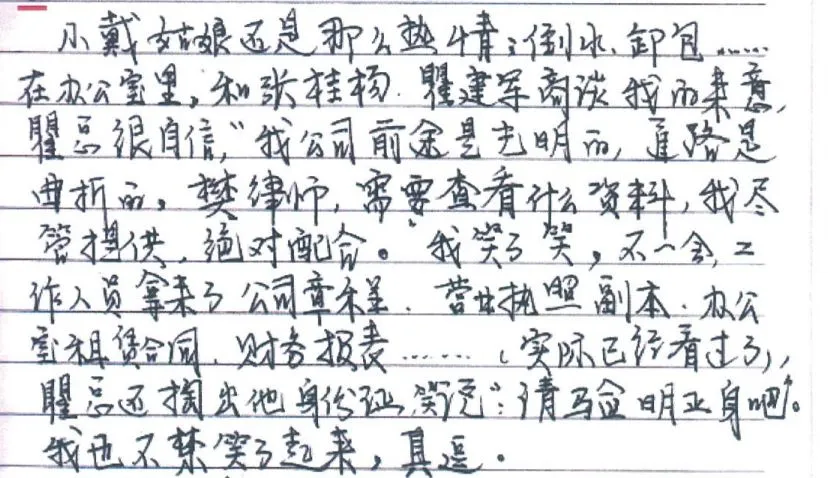 小戴姑娘还是那么热情：倒水、卸包……
在办公室里，和张桂杨、瞿建军商谈我的来意，
瞿总很自信，“我公司前途是光明的，道路是
曲折的。樊律师，需要查看什么资料，我尽
管提供，绝对配合。”我笑了笑，不一会，工
作人员拿来了公司章程、营业执照副本、办公
室租赁合同、财务报表……（实际已经看过了），
瞿总还掏出他身份证，笑说“：请验明正身吧”。
我也不禁笑了起来，真逗。